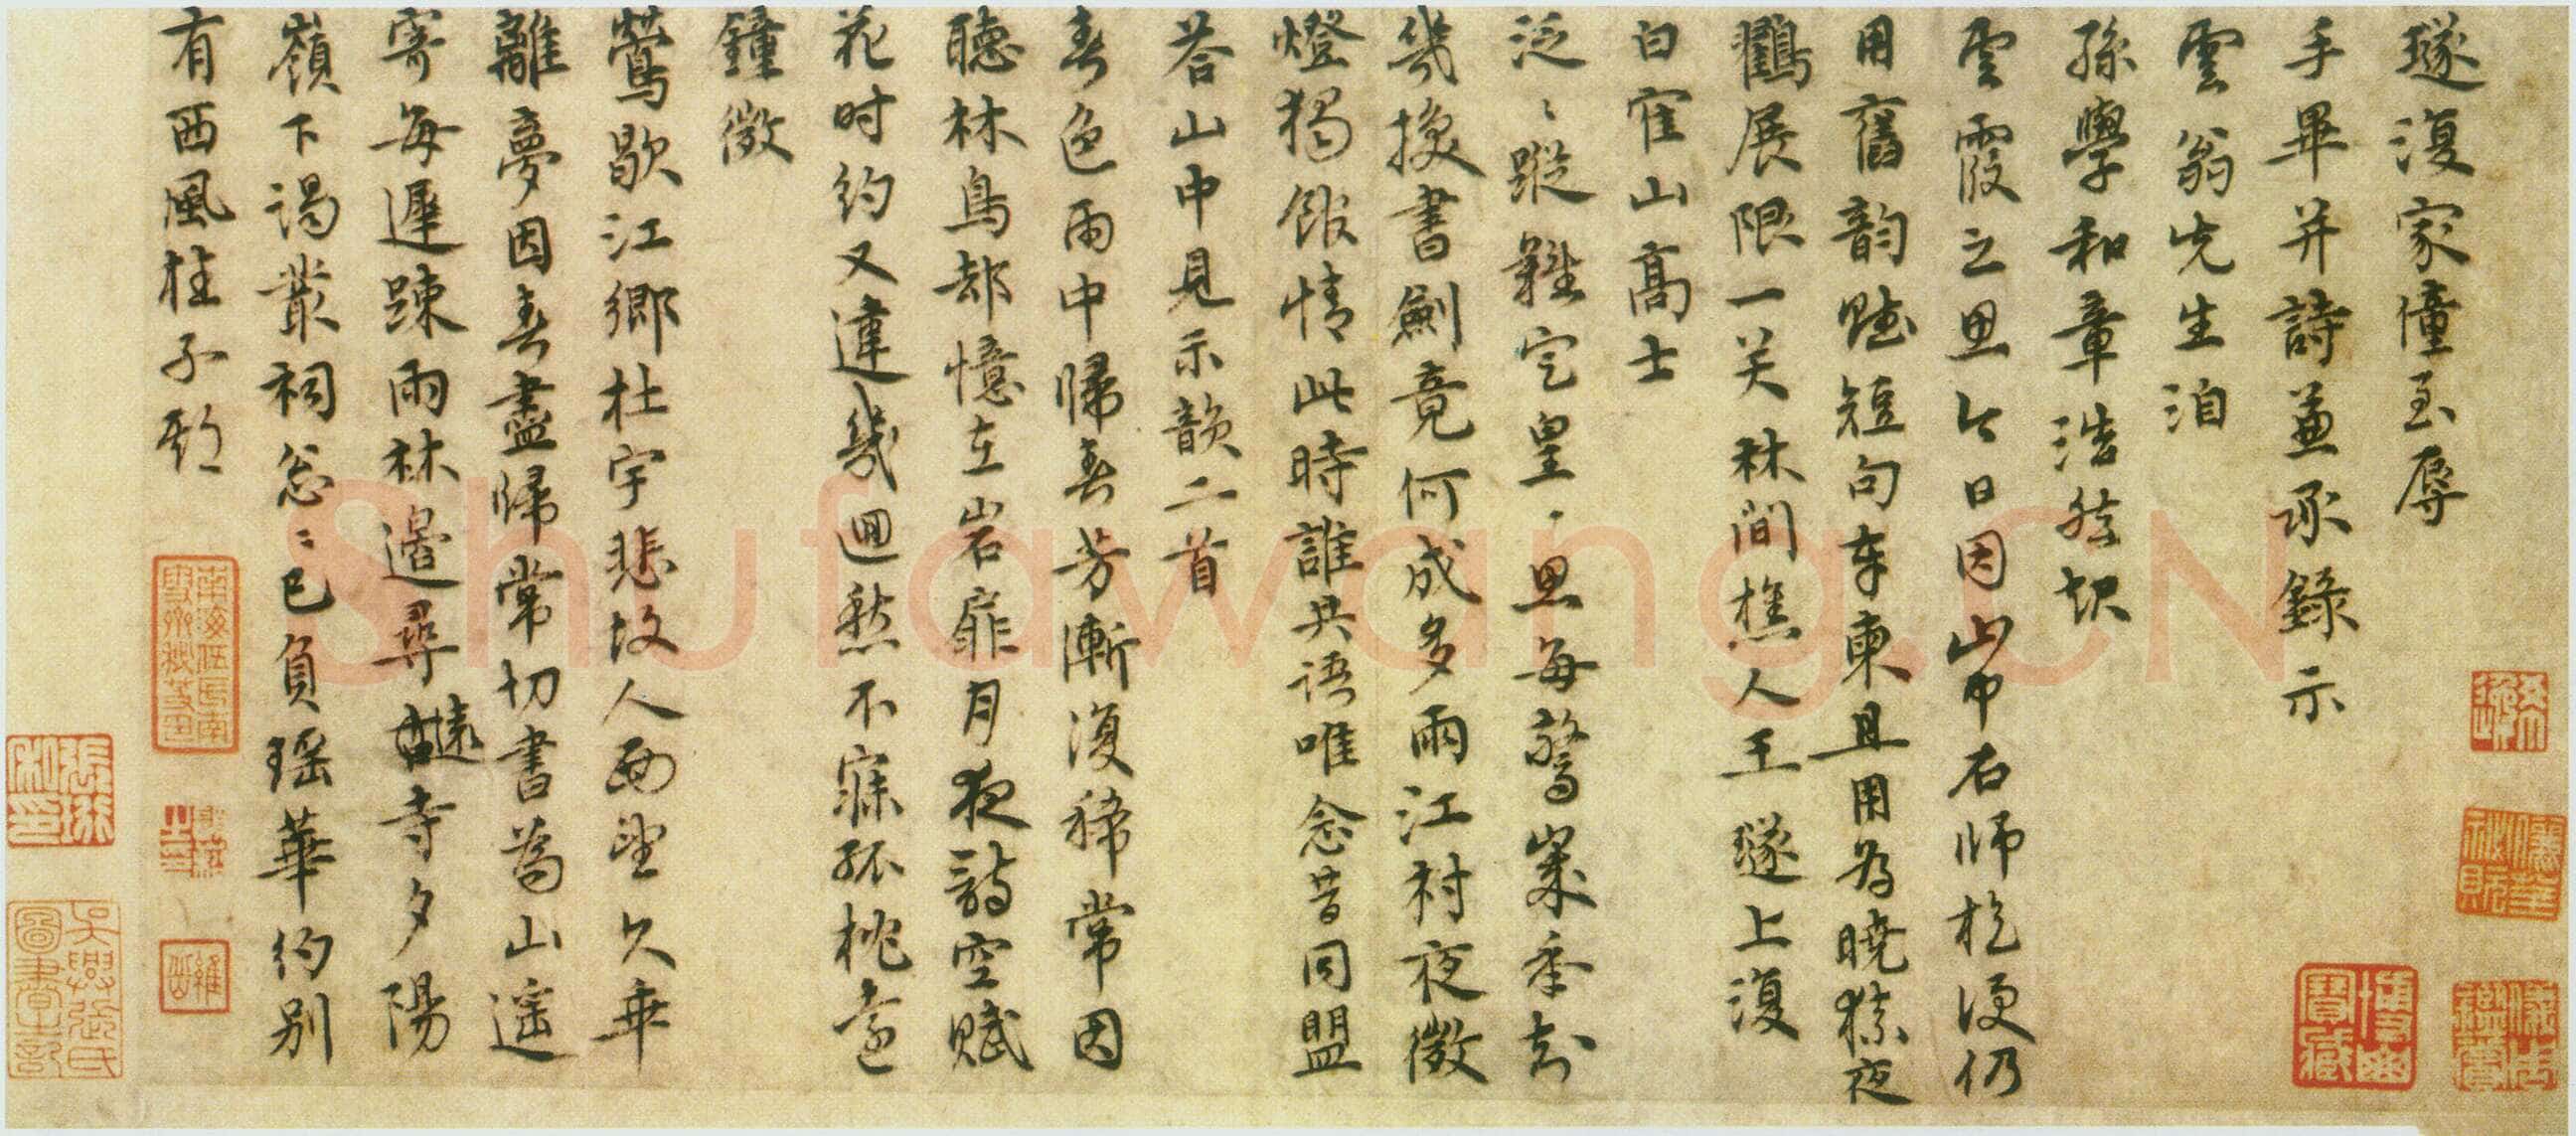 璲復家僮至辱
手畢并詩兼承錄示
雲翁先生洎
孫學和章浩然起
雲霞之思今日因山中石師抵便仍
用舊韵賦短句奉柬且用為曉猿夜
鶴展限一关林間樵人王璲上復
白雀山高士
泛〻蹤難定皇〻思每驚業季刻
幾換書劍竟何成多雨江村夜微
燈獨館情此時誰共語唯念昔同盟
荅山中見示韻二首
春色雨中歸春芳漸復稀常因
聽林鳥却憶在岩扉月夜詩空賦
花时約又違幾迴愁不寐孤枕遠
鐘微
鶯歇江鄉杜宇悲故人西望久乖
離夢因春盡歸常切書為山遥
寄每遲踈雨林邊尋遠寺夕陽
嶺下謁叢祠怱〻已負瑶華約别
有西風桂子期
Shufawang.CN